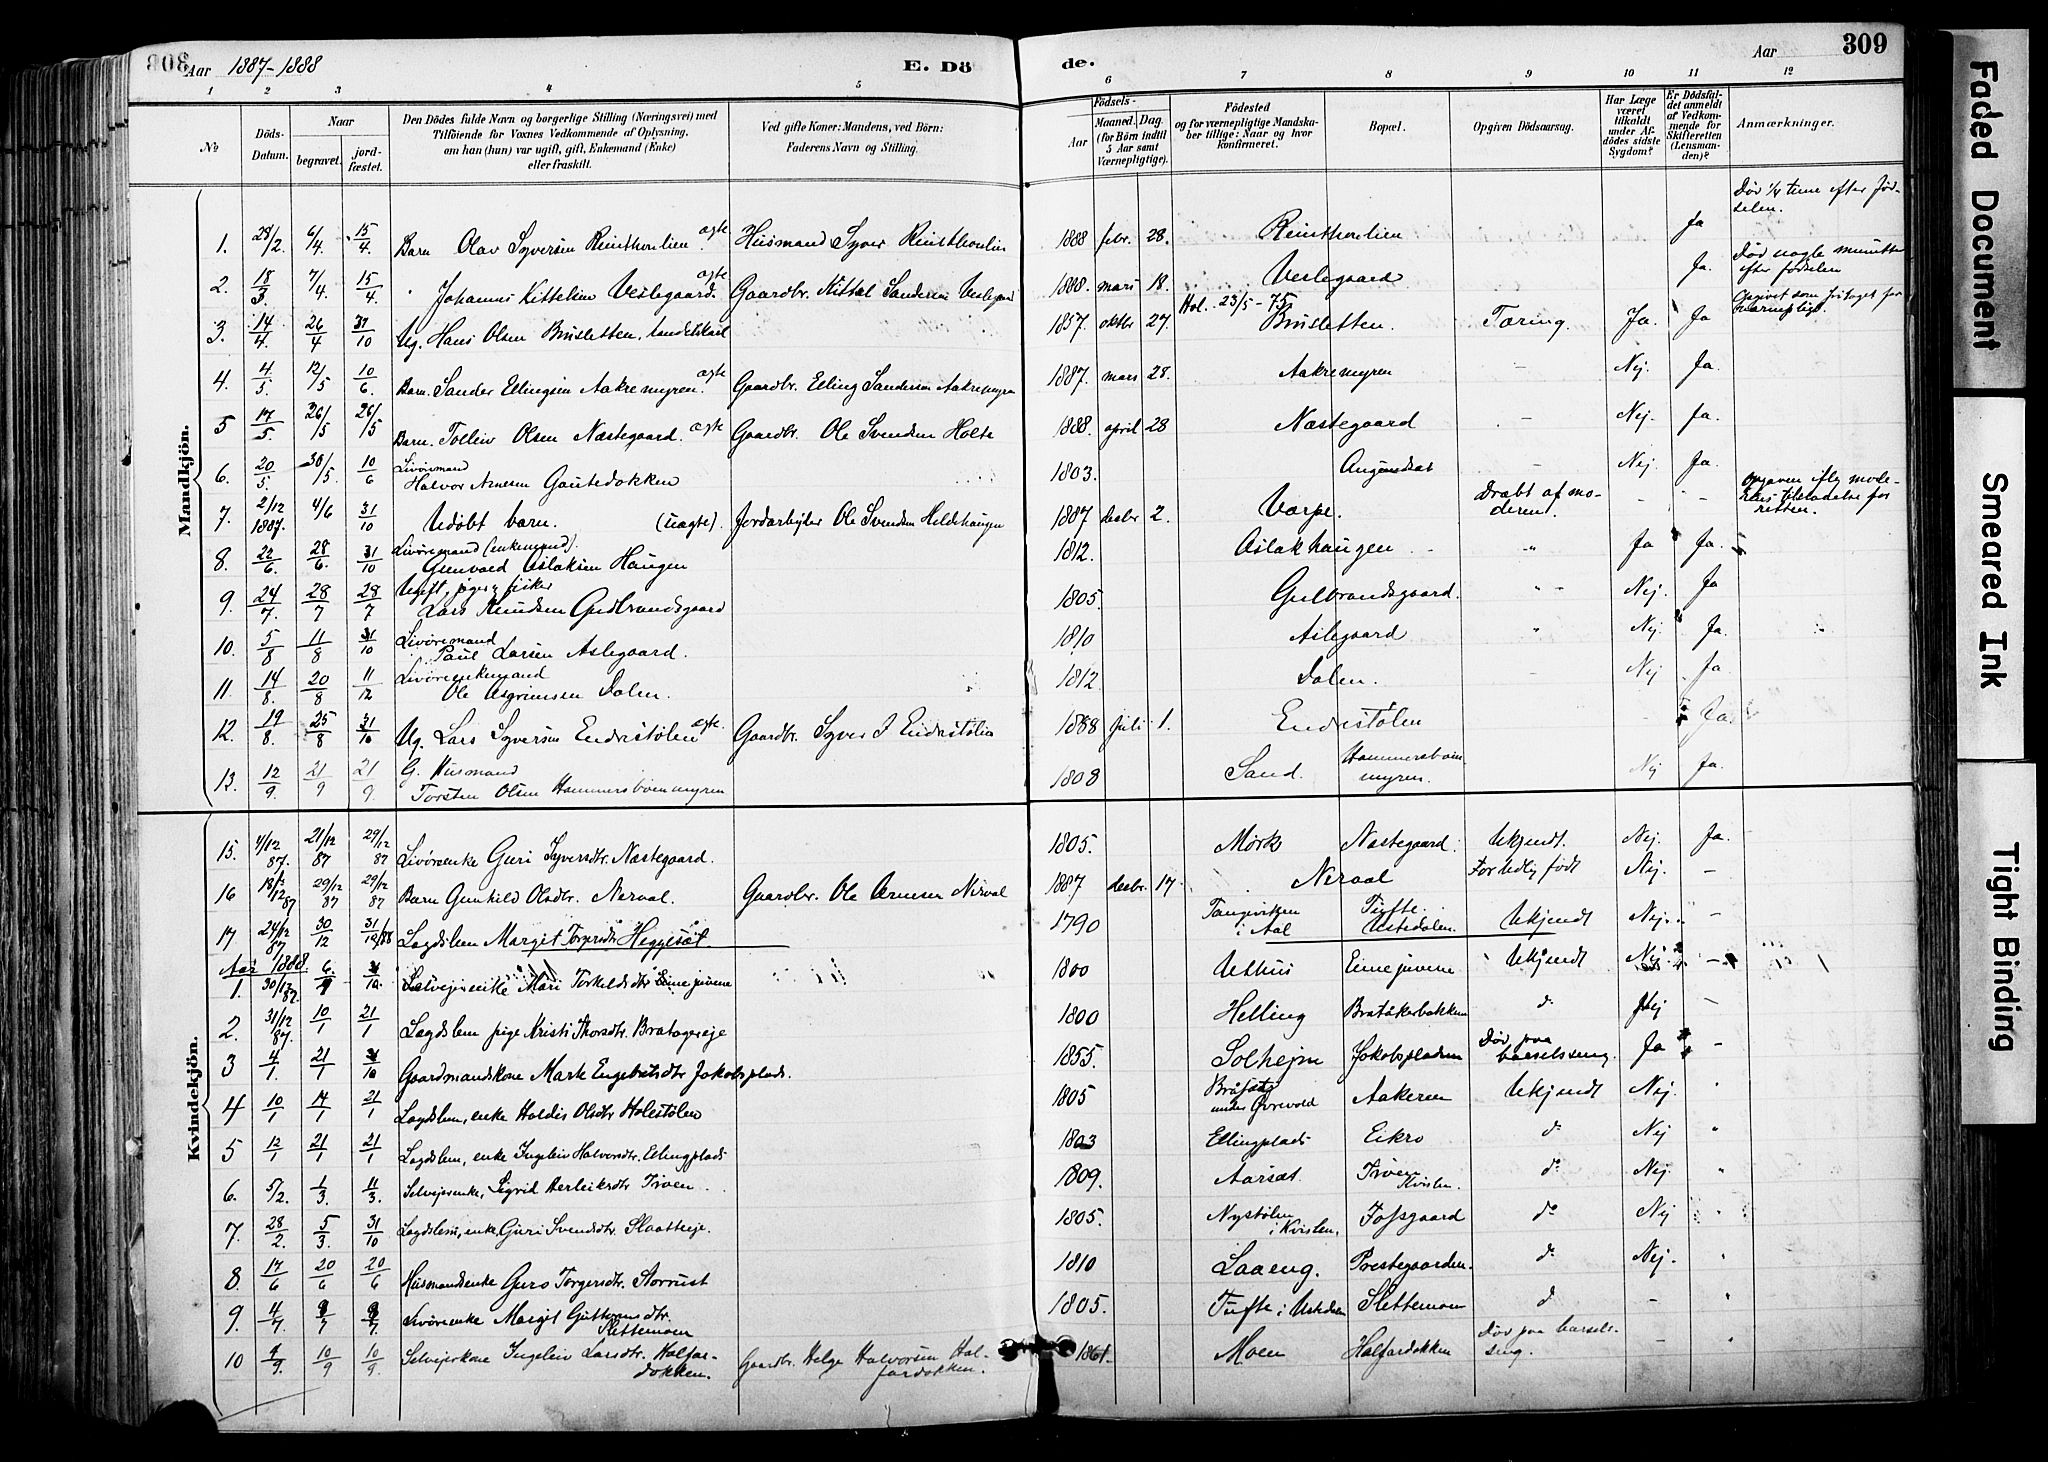 308
Aar 1887-1888
E. Dö
de.
Aar
309
1 2 3 4 5 6 7 8 9 10 11 12
No
Döds-Datum.
Naar
begravet.
jord-fæstet.
Den Dödes fulde Navn og borgerlige Stilling (Næringsvei) med
Tilföiende for Voxnes Vedkommende af Oplysning,
om han (hun) var ugift, gift, Enkemand (Enke)
eller fraskilt.
Ved gifte Koner: Mandens, ved Börn:
Faderens Navn og Stilling.
Födsels-
Aar
Maaned. Dag.
(for Börn indtil
5 Aar samt
Værnepligtige).
Födested
og for værnepligtige Mandska-
ber tillige: Naar og hvor
konfirmeret.
Bopæl.
Opgiven Dödsaarsag.
Har Læge
været
tilkaldt
under Af-
dödes sidste
Sygdom?
Er Dödsfal-
det anmeldt
af Vedkom-
mende for
Skifteretten
(Lensman-
den)?
Anmærkninger.
Mandkjön.
1. 28/2. 6/4 15/4. Barn Olav Syversen Reinthonlien ægte Husmand Syver Reinthonlien 1888 febr. 28. Reinthonlien Ja Död 1/4 time efter fød-
selen.
2. 18/3 7/4. 15/4 " Johannes Kittelsen Veslegaard. ægte Gaardbr. Kittel Sandersen Veslegaard 1888. mars 18. Veslegaard Ja. Död nogle minutter
efter fødselen
3. 14/4. 26/4 31/10 Ug. Hans Olsen Brusletten, handelskarl 1857 oktbr 27. Hol. 23/5-75 Brusletten. Tæring. Ja. Ja
4. 4/5 12/5 10/6. Barn. Sander Ellingsen Aakremyren. ægte Gaardbr. Elling Sandersen Aakremyren 1887. mars 28. Aakremyren Nej. Ja.
5 17/5. 26/5 26/5 Barn. Tollev Olsen Næstegaard. ægte Gaardbr. Ole Svendsen Holte 1888. april 28 Næstegaard - Nej. Ja.
6. 20/5. 30/5. 10/6 Livöremand
Halvor Arnesen Gautedokken 1803. - Nej. Ja.
7. 2/12 1887. 4/6 31/10 Udöbt barn. (uægte). Jordarbejder Ole Svendsen Heldehaugen 1887 desbr 2. Varpe. Dræbt af mo-
deren. - -
8. 22/6 28/6. 31/10 Livöremand (enkemand).
Gunvald Aslaksen Haugen 1812. Aslakhaugen " Ja Ja.
9. 24/7. 28/7 28/7 Ugift, jæger, fisker
Lars Knudsen Gudbrandsgaard 1805. Gulbrandsgaard. " Nej. Ja
10. 5/8 11/8 31/10 Livöremand
Paul Larsen Aslegaard. 1810 Aslegaard " Nej. Ja.
11. 14/8. 20/8 11/12 Livöreenkemand
Ole Asgrimsen Dalen. 1812. Dalen. Nej Ja
12. 19/8. 25/8 31/10 Ug. Lars Syversen Endrestölen ægte Gaardbr. Syver J Endrestölen 1888 juli 1. Endrestölen Ja
13. 12/9. 21/9 21/9. G. Husmand
Torsten Olsen Hammersboenmyren 1808 Sand. Hammersboen-
myren. Nej Ja.
Kvindekjön.
15. 4/12 87. 21/12 87 29/12 87 Livöreenke Guri Syversdtr. Næstegaard. 1805. Mørk Næstegaard. Ukjendt. Nej. Ja.
16 18/12 87 29/12 87 29/12 87 Barn Gunhild Olsdtr. Neraal. Gaardbr. Ole Arnesen Neraal 1887 desbr. 17. Neraal For tidlig födt Nej. -
17 24/12 87 30/12 31/10/88 Lægdslem Margit Torgersdtr. Heggesæt 1790 Tangevikken
i Aal Tufte
Ustedalen. Ukjendt Nej. -
Aar 1888.
1. 30/12 87. 6/1 31/10. Selvejerenke Mari Torkildsdtr. Eimejuvene 1800 Uthus Eimejuvene Ukjendt Nej. -
2. 31/12 87. 10/1 21/1 Lægdslem pige Kristi Thorsdtr. Bratagereje 1800 Helling Bratåkerbakken d° Nej -
3 4/1. 21/1 31/10 Gaardmandskone Marte Engebretsdtr Jakobsplads. 1855. Solhejm Jakobspladsen Död paa
barselseng. Ja -
4 10/1 14/1 21/1 Lægdslem, enke Haldis Olsdtr Holestölen 1805 Aakeren Ukjendt Nej. "
5 12/1 21/1 21/1 Lægdslem, enke Ingeleiv Halvorsdtr. Ellingplads 1803 Ellingplads Eikro d° Nej "
6. 5/2. 1/3. 11/3. Selvejerenke, Sigrid Herleiksdtr Troen. 1809. Aarsæt Troen
Kvislen. d° Nej. "
7. 28/2. 5/3. 31/10 Lægdslem, enke, Guri Svendsdtr. Slaatteeje. 1805. Nystölen
i Kvislen. Fossgaard d° Nej "
8 17/6 20/6 20/6 Husmandsenke Guro Torgersdtr. Storrust 1810 Laaeng. Prestegaarden. d° Nej. "
9. 4/7. 9/7 9/7 Livöreenke Margit Guttormsdtr.
Slettemoen 1805. Tufte i Ustedalen Slettemoen d° - "
10 4/9. 10/9 10/9 Selvejerkone Ingeleiv Larsdtr. Halfar-
dokken. Gaardbr. Helge Halvorsen Hal-
fardokken. 1861. Moen Halfardokken Död paa barsel-
seng. - "
Faded Document
Smeared Ink
Tight Binding